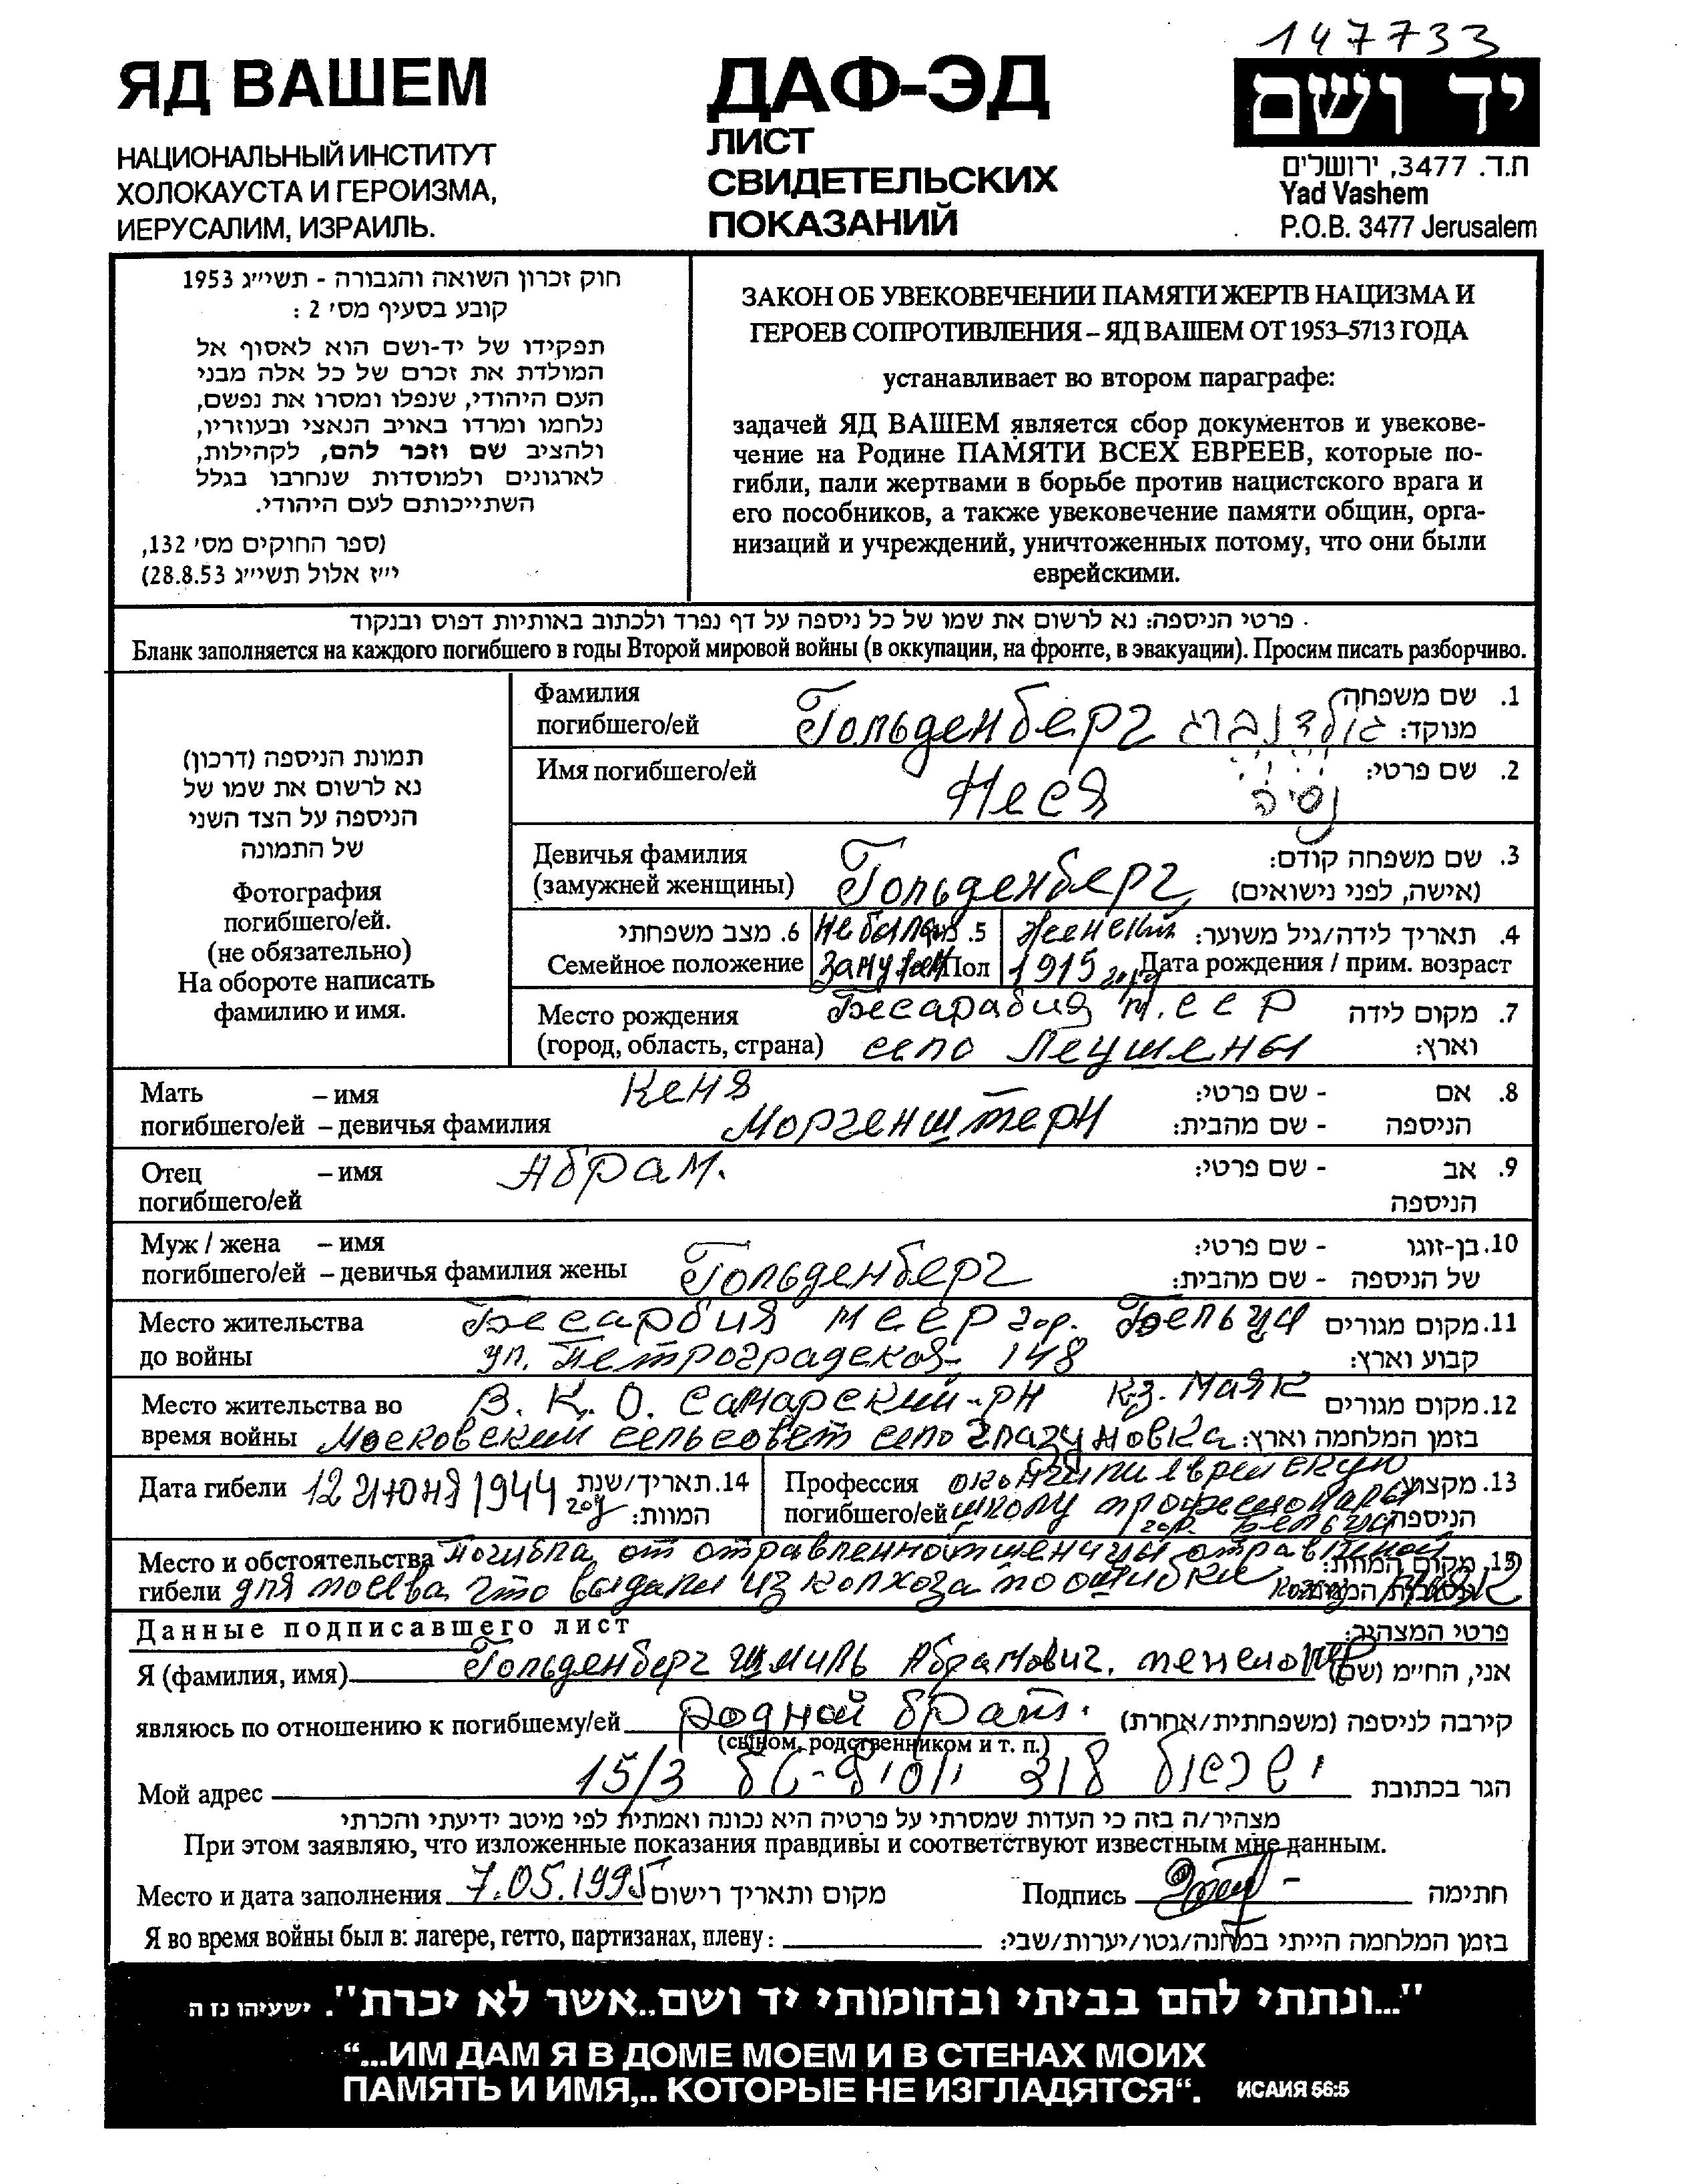 147733
ЯД ВАШЕМ
НАЦИОНАЛЬНЫЙ ИНСТИТУТ
ХОЛОКАУСТА И ГЕРОИЗМА,
ИЕРУСАЛИМ, ИЗРАИЛЬ.
ДАФ-ЭД
ЛИСТ
СВИДЕТЕЛЬСКИХ
ПОКАЗАНИЙ
יד ושם
ת.ד. 3477, ירושלים
Yad Vashem
P.O.B. 3477 Jerusalem
חוק זכרון השואה והגבורה - תשי״ג 1953
קובע בסעיף מס׳ 2 :
תפקידו של יד-ושם הוא לאסוף אל
המולדת את זכרם של כל אלה מבני
העם היהודי, שנפלו ומסרו את נפשם,
נלחמו ומרדו באויב הנאצי ובעוזריו,
ולהציב שם וזכר להם, לקהילות,
לארגונים ולמוסדות שנחרבו בגלל
השתייכותם לעם היהודי.
(ספר החוקים מס׳ 132,
י״ז אלול תשי״ג 28.8.53)
ЗАКОН ОБ УВЕКОВЕЧЕНИИ ПАМЯТИ ЖЕРТВ НАЦИЗМА И
ГЕРОЕВ СОПРОТИВЛЕНИЯ – ЯД ВАШЕМ ОТ 1953–5713 ГОДА
устанавливает во втором параграфе:
задачей ЯД ВАШЕМ является сбор документов и увекове-
чение на Родине ПАМЯТИ ВСЕХ ЕВРЕЕВ, которые по-
гибли, пали жертвами в борьбе против нацистского врага и
его пособников, а также увековечение памяти общин, орга-
низаций и учреждений, уничтоженных потому, что они были
еврейскими.
פרטי הניספה: נא לרשום את שמו של כל ניספה על דף נפרד ולכתוב באותיות דפוס ובנקוד
Бланк заполняется на каждого погибшего в годы Второй мировой войны (в оккупации, на фронте, в эвакуации). Просим писать разборчиво.
תמונת הניספה (דרכון)
נא לרשום את שמו של
הניספה על הצד השני
של התמונה
Фотография
погибшего/ей.
(не обязательно)
На обороте написать
фамилию и имя.
Фамилия שם משפחה .1
погибшего/ей Гольденберг גולדנברג מנוקד:
Имя погибшего/ей Неся נסיה שם פרטי: .2
Девичья фамилия שם משפחה קודם: .3
(замужней женщины) Гольденберг (אישה, לפני נישואים)
6. מצב משפחתי не была 5. מין женский תאריך לידה/גיל משוער: .4
Семейное положение замужем Пол 1915 года Дата рождения / прим. возраст
Место рождения Бесарабия м. ССР מקום לידה .7
(город, область, страна) село Леушены וארץ:
Мать – имя Кеня - שם פרטי: אם .8
погибшего/ей – девичья фамилия Моргенштерн - שם מהבית: הניספה
Отец – имя Абрам. - שם פרטי: אב .9
погибшего/ей הניספה
Муж / жена – имя - שם פרטי: בן-זוגו .10
погибшего/ей – девичья фамилия жены Гольденберг - שם מהבית: של הניספה
Место жительства Бесарбия МССР гор. Бельцы מקום מגורים .11
до войны ул. Петроградская 148 קבוע וארץ:
Место жительства во В. К. О. Самарский-рн кз. Маяк מקום מגורים .12
время войны Московский сельсовет село Глазуновка בזמן המלחמה וארץ:
Дата гибели 12 июня 1944 год תאריך/שנת .14 המוות:
Профессия окончили еврейскую מקצוע .13
погибшего/ей школу гор. Бельцы הניספה
Место и обстоятельства Погибла от отравленной пшеницы отравленой מקום המוות .15
гибели для посева, что выдали из колхоза по ошибки Маяк
Данные подписавшего лист פרטי המצהיר:
Я (фамилия, имя) Гольденберг Шмиль Абрамович, אני, הח״מ (שם)
являюсь по отношению к погибшему/ей родной брат. קירבה לניספה (משפחתית/אחרת)
(сыном, родственником и т. п.)
Мой адрес 15/3 ישראל הגר בכתובת
מצהיר/ה בזה כי העדות שמסרתי על פרטיה היא נכונה ואמתית לפי מיטב ידיעתי והכרתי
При этом заявляю, что изложенные показания правдивы и соответствуют известным мне данным.
Место и дата заполнения 7.05.1995 מקום ותאריך רישום Подпись חתימה
Я во время войны был в: лагере, гетто, партизанах, плену: בזמן המלחמה הייתי במחנה/גטו/יערות/שבי:
"...ונתתי להם בביתי ובחומותי יד ושם..אשר לא יכרת". ישעיהו נז ה
“...ИМ ДАМ Я В ДОМЕ МОЕМ И В СТЕНАХ МОИХ
ПАМЯТЬ И ИМЯ,.. КОТОРЫЕ НЕ ИЗГЛАДЯТСЯ“. ИСАИЯ 56:5